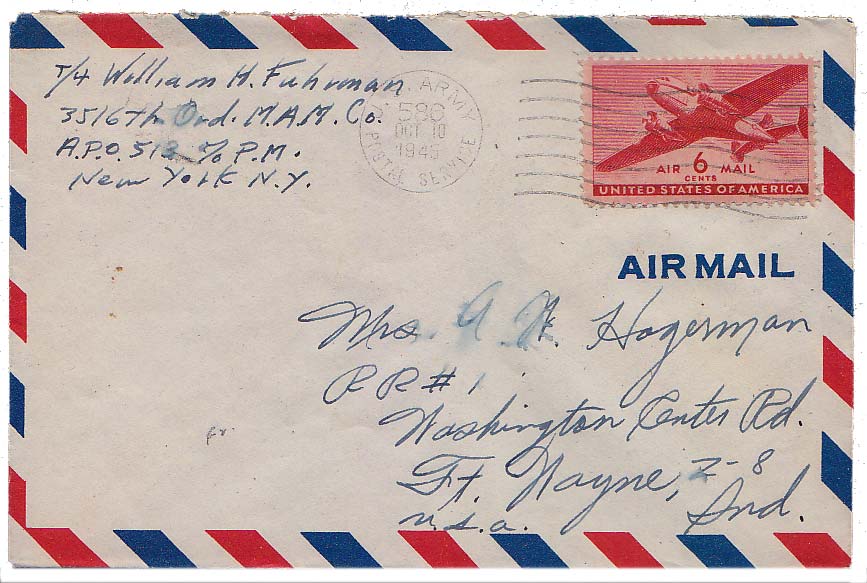 T/4 William H. Fuhrman
3516th Ord. M.A.M. Co.
A.P.O. 513 % P.M.
New York N.Y.
U.S. ARMY
586
OCT 10
1945
POSTAL SERVICE
AIR 6 MAIL
CENTS
UNITED STATES OF AMERICA
AIR MAIL
Mrs. A. H. Hagerman
RR #1
Washington Center Rd.
Ft. Wayne, 2-8
Ind.
U.S.A.